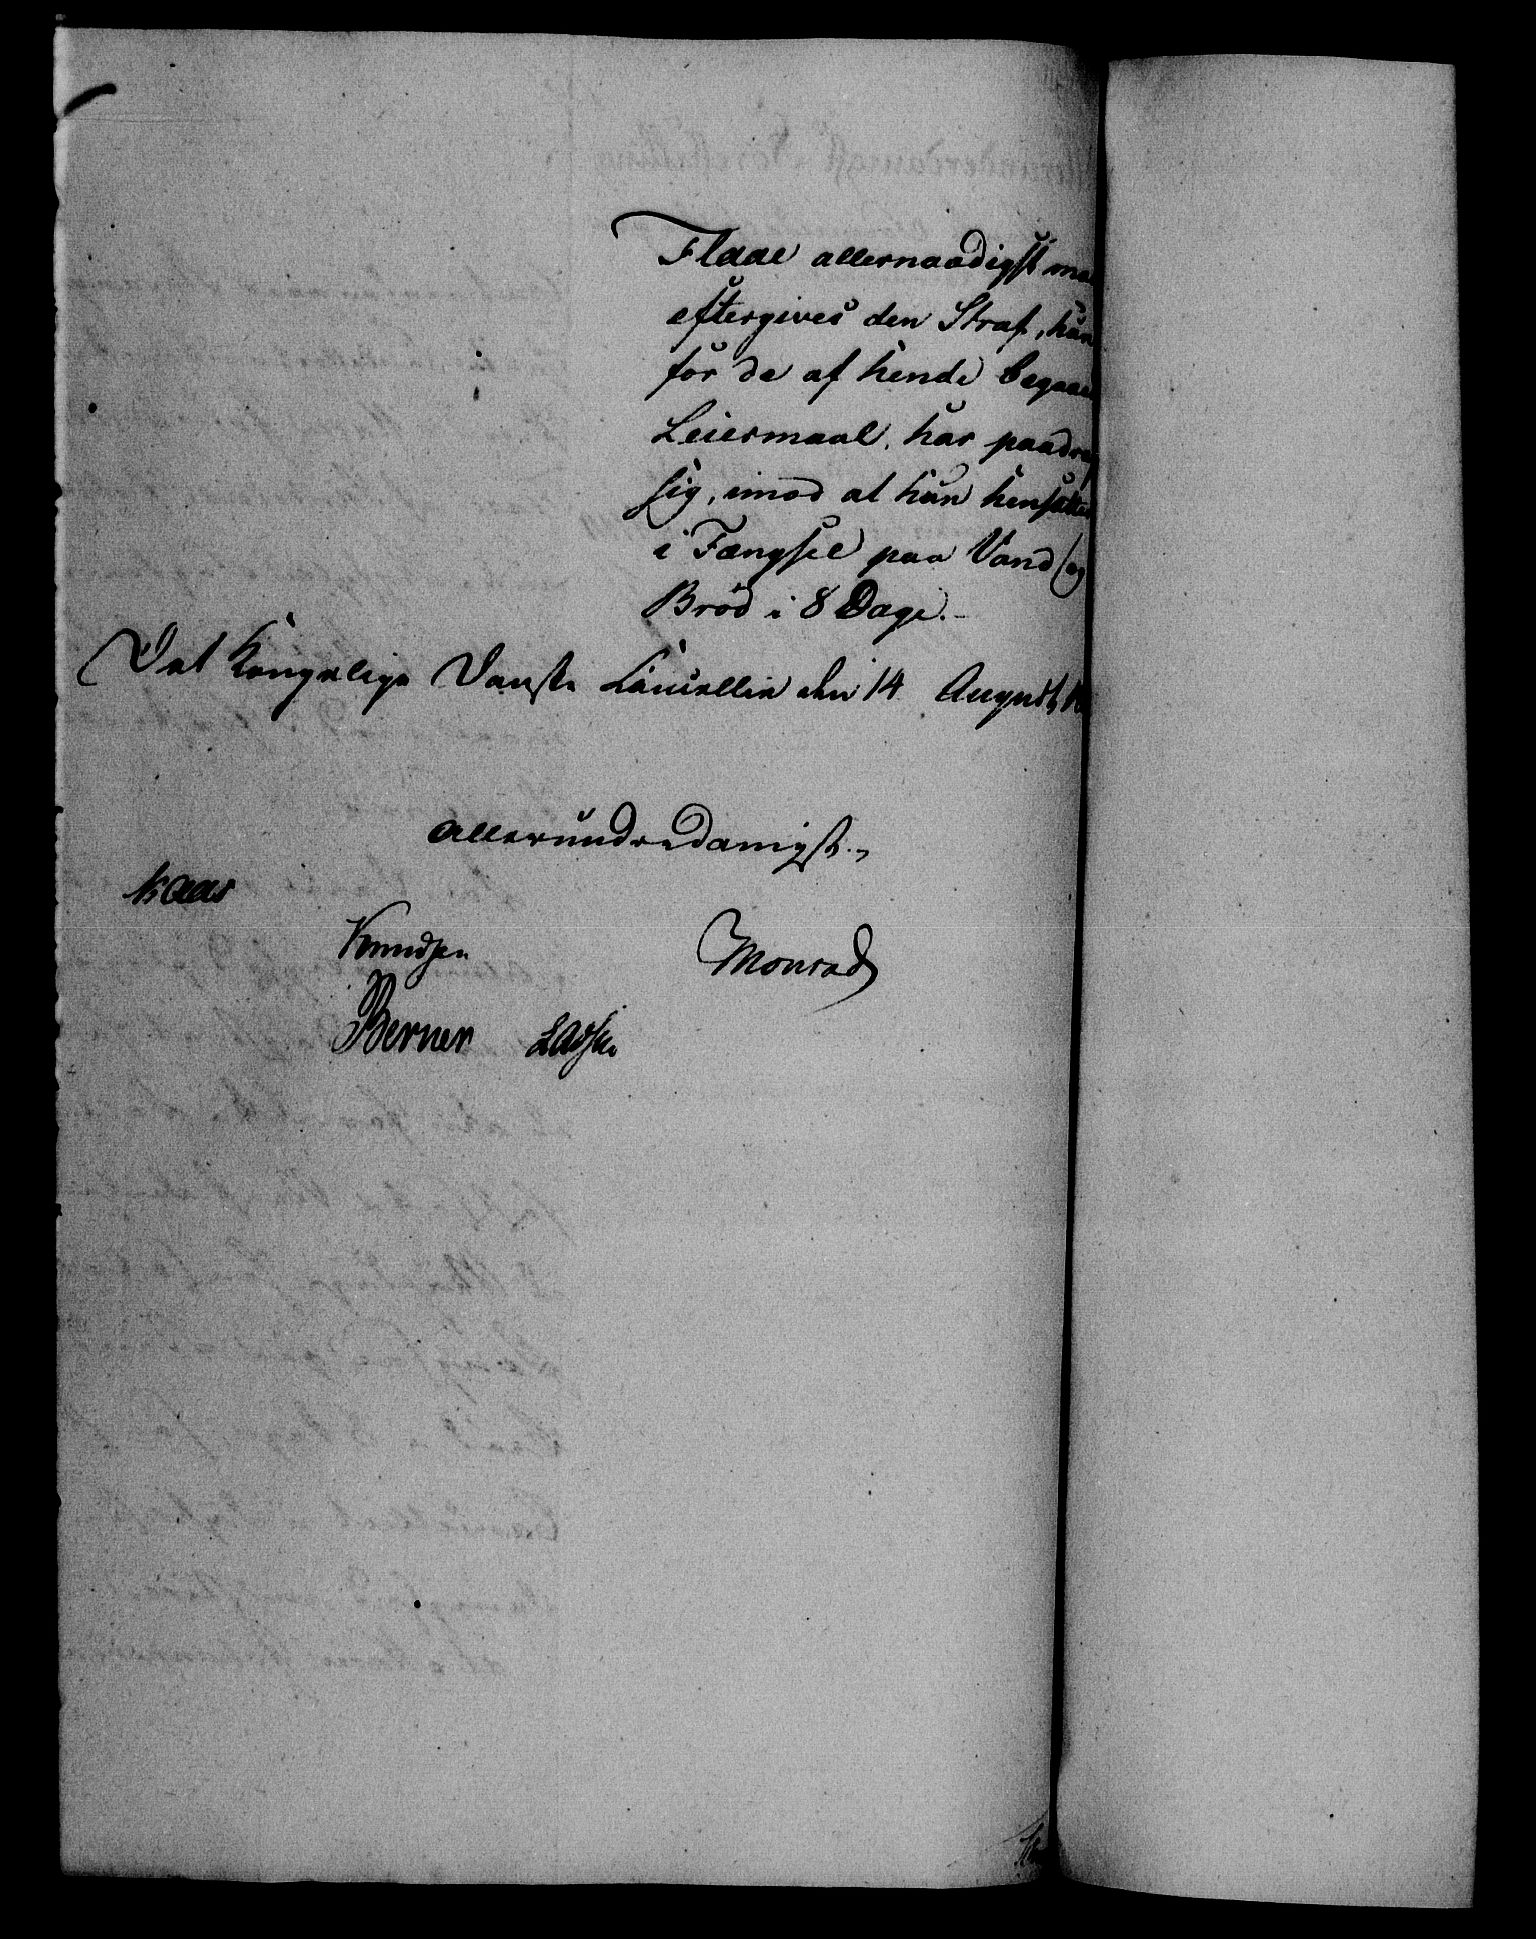 Flaae allernaadigst maa
eftergives den Straf, hun
for de af hende begaaede
Leiermaal, har paadraget
sig, imod at hun hensættes
i Fængsel paa Vand og
Brød i 8 Dage.
Det Kongelige Danske Cancellie den 14 August
allerunderdanigst.
Kaas
Knudsen Monrad
Berner Lassen